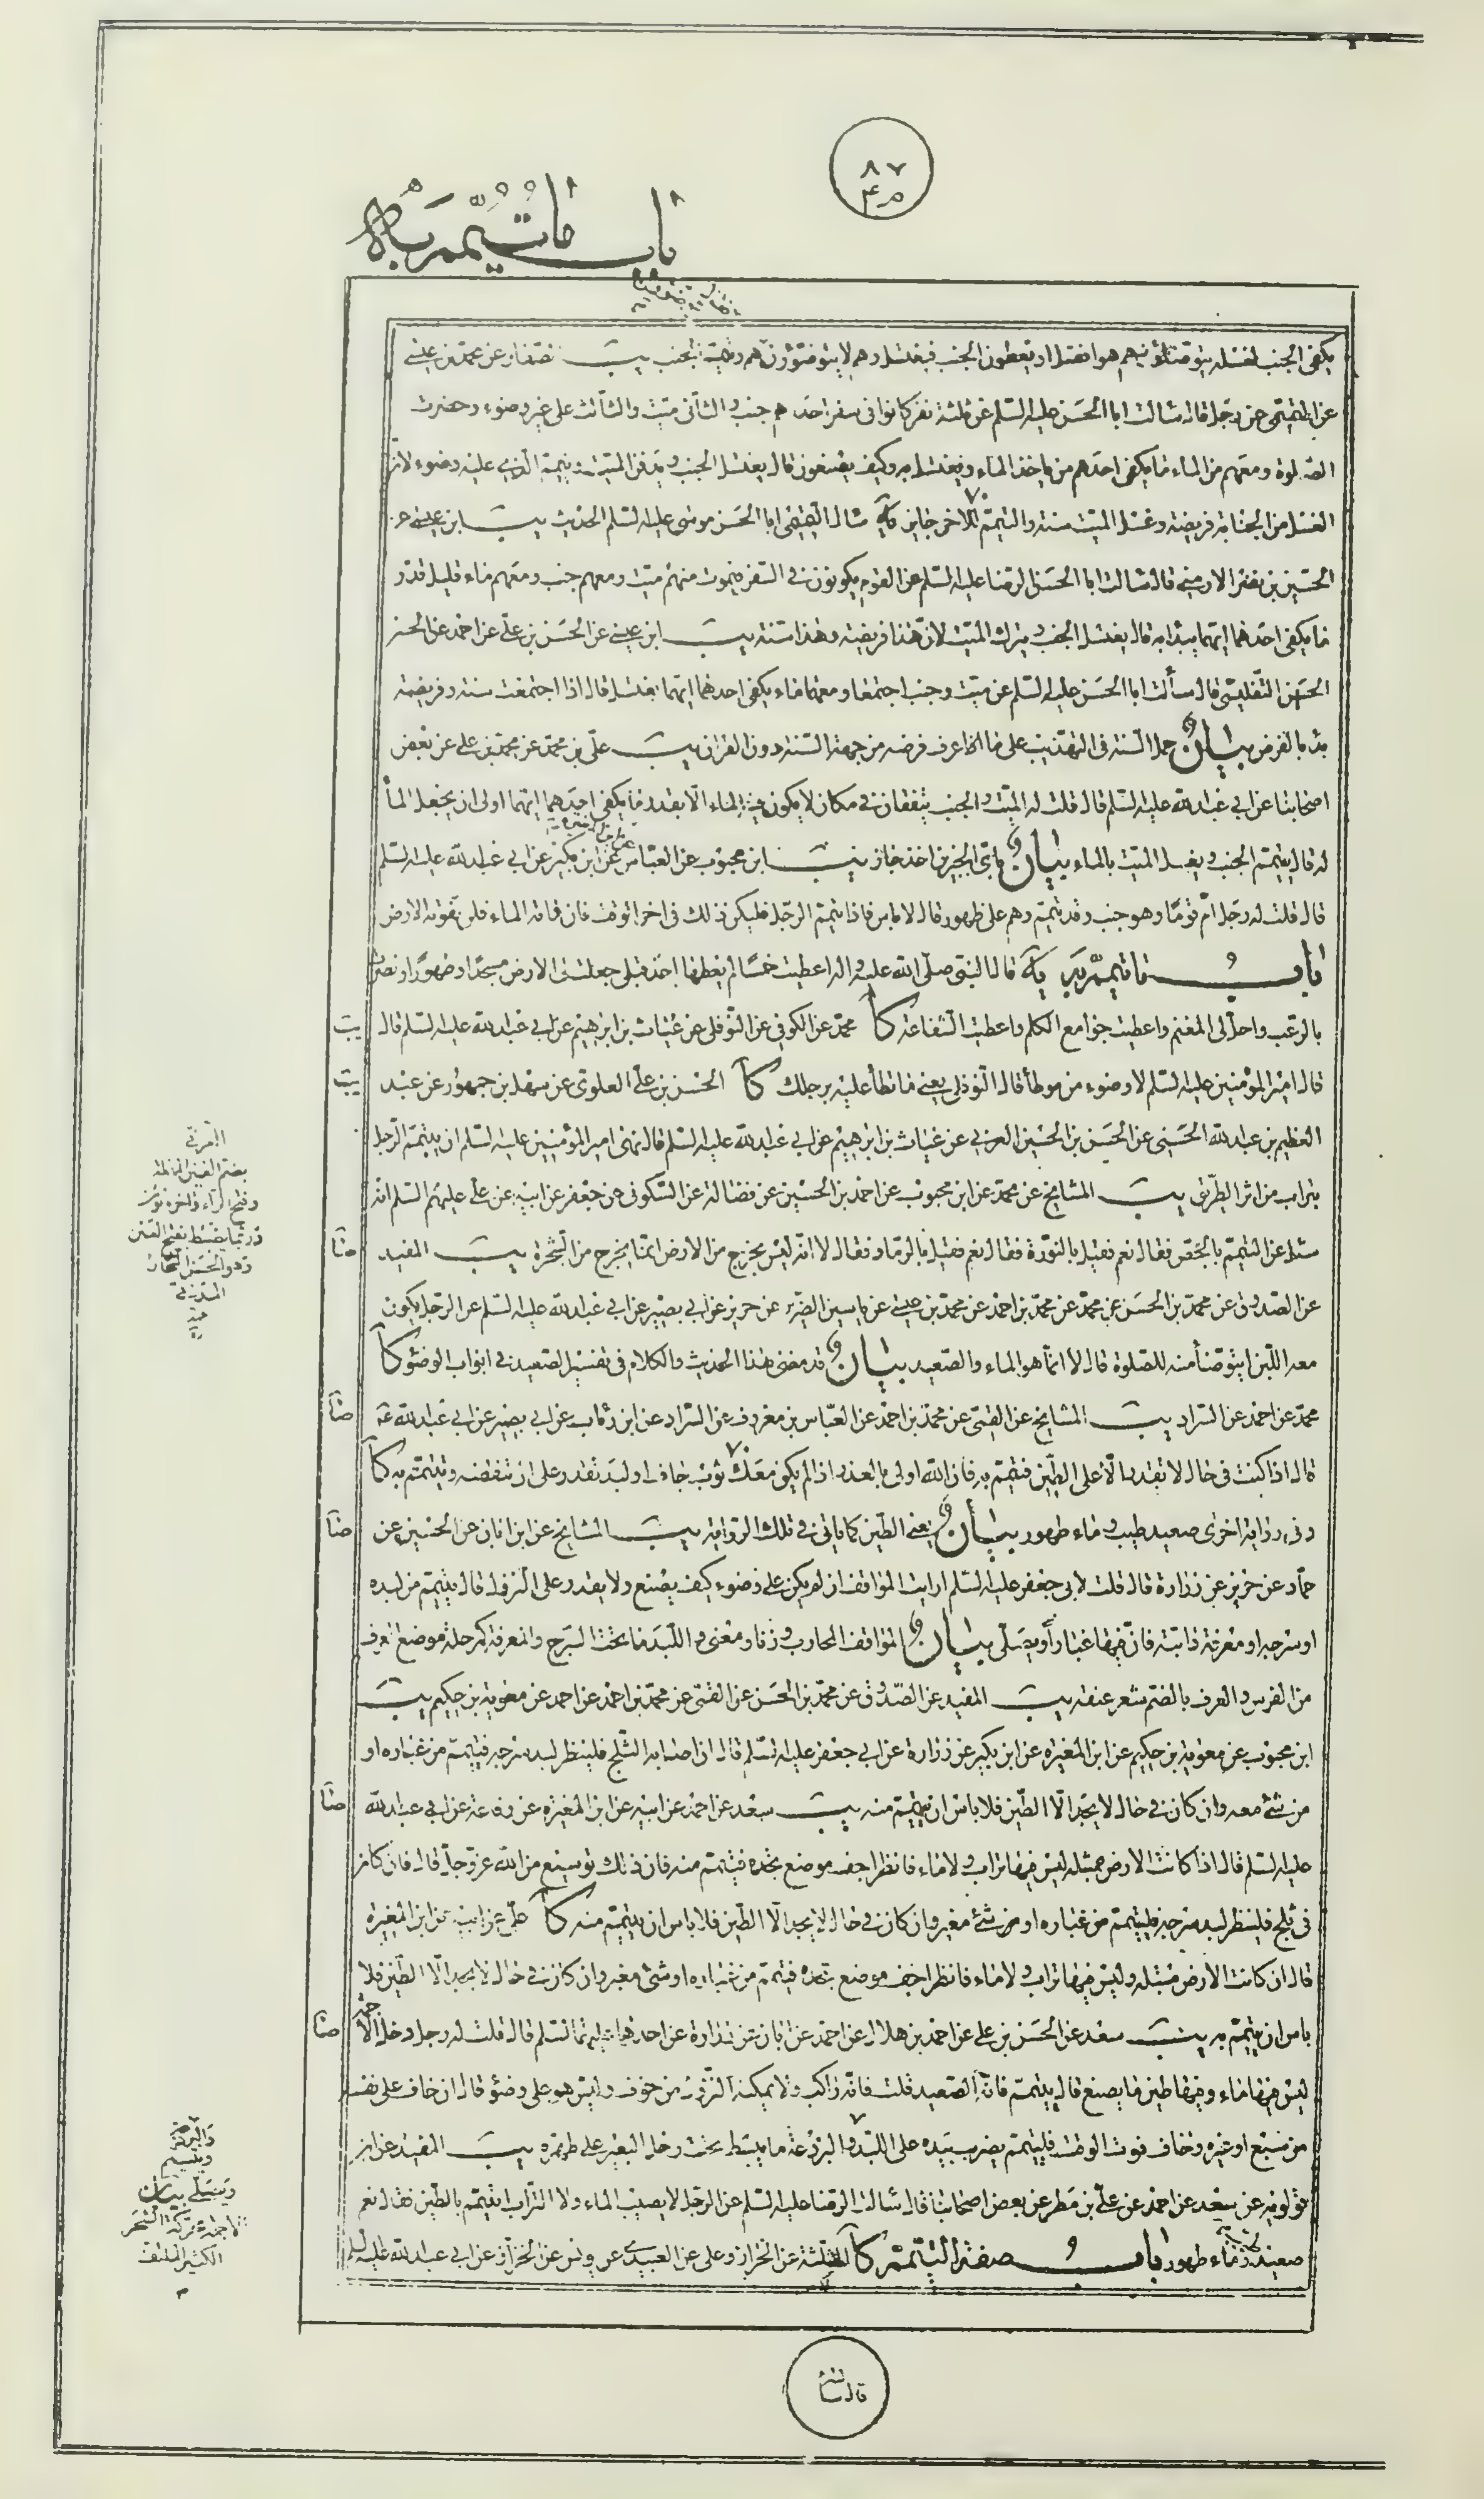 ٨٧
باب ما يتيمم به
يكفي الجنب لغسله يتوضئون به هو افضل او يعطون الجنب فيغتسل وهم لا يتوضئون هم ويتيمم الجنب يب الصفار عن محمد بن عيسى
عن التميمي عن رجل قال سالت ابا الحسن عليه السلم عن ثلثة نفر كانوا في سفر احدهم جنب والثاني ميت والثالث على غير وضوء وحضرت
الصلوة ومعهم من الماء ما يكفي احدهم من ياخذ الماء ويغتسل به وكيف يصنعون قال يغتسل الجنب ويدفن الميت ويتيمم الذي عليه وضوء لان
الغسل من الجنابة فريضة وغسل الميت سنة والتيمم للاخر جايز يه سال التميمي ابا الحسن موسى عليه السلم الحديث يب ابن عيسى عن
الحسين بن نضر الارمني قال سالت ابا الحسن الرضا عليه السلم عن القوم يكونون في السفر فيموت منهم ميت ومعهم جنب ومعهم ماء قليل قدر
ما يكفي احدهما ايهما يبدأ به قال يغتسل الجنب ويترك الميت لان هذا فريضة وهذا سنة يب ابن عيسى عن الحسن بن علي عن احمد عن الحسن
التفليسي قال سألت ابا الحسن عليه السلم عن ميت وجنب اجتمعا ومعهما ماء يكفي احدهما ايهما يغتسل قال اذا اجتمعت سنة وفريضة
بدئ بالفرض بيان حمل السنة في التهذيب على ما عرف فرضه من جهة السنة دون القران يب علي بن محمد عن محمد بن علي عن بعض
اصحابنا عن ابي عبد الله عليه السلم قال قلت له الميت والجنب يتفقان في مكان لا يكون فيه الماء الا بقدر ما يكفي احدهما ايهما اولى ان يجعل الماء
له قال يتيمم الجنب ويغسل الميت بالماء بيان باي الخبرين اخذ جاز يب ابن محبوب عن العباس عن ابن بكير عن ابي عبد الله عليه السلم
قال قلت له رجل ام قوما وهو جنب وقد تيمم وهم على طهور قال لا باس فاذا تيمم الرجل فليكن ذلك في اخر الوقت فان فاته الماء فلن تفوته الارض
باب ما يتيمم به يه قال النبي صلى الله عليه واله اعطيت خمسا لم يعطها احد قبلي جعلت لي الارض مسجدا وطهورا ونصرت
بالرعب واحل لي المغنم واعطيت جوامع الكلم واعطيت الشفاعة كا محمد عن الكوفي عن النوفلي عن غياث بن ابرهيم عن ابي عبد الله عليه السلم قال
يب
قال امير المؤمنين عليه السلم لا وضوء من موطأ قال النوفلي يعني ما تطأ عليه برجلك كا الحسن بن علي العلوي عن سهل بن جمهور عن عبد
يب
العظيم بن عبد الله الحسني عن الحسن بن الحسين العرني عن غياث بن ابرهيم عن ابي عبد الله عليه السلم قال نهى امير المؤمنين عليه السلم ان يتيمم الرجل
بتراب من اثر الطريق يب المشايخ عن محمد عن ابن محبوب عن احمد بن الحسين عن فضالة عن السكوني عن جعفر عن ابيه عن علي عليهم السلم انه
سئل عن التيمم بالجص فقال نعم فقيل بالنورة فقال نعم فقيل بالرماد فقال لا انه ليس يخرج من الارض انما يخرج من الشجرة يب المفيد
صا
عن الصدوق عن محمد بن الحسن عن محمد عن محمد بن احمد عن محمد بن عيسى عن ياسين الضرير عن حريز عن ابي بصير عن ابي عبد الله عليه السلم عن الرجل يكون
معه اللبن ايتوضأ منه للصلوة قال لا انما هو الماء والصعيد بيان قد مضى هذا الحديث والكلام في تفسير الصعيد في ابواب الوضوء كا
محمد عن احمد عن السراد يب المشايخ عن القمي عن محمد بن احمد عن العباس بن معروف عن السراد عن ابن رئاب عن ابي بصير عن ابي عبد الله ع
صا
قال اذا كنت في حال لا تقدر الا على الطين فتيمم به فان الله اولى بالعذر اذا لم يكن معك ثوب جاف او لبد تقدر على ان تنفضه وتتيمم به كا
وفي رواية اخرى صعيد طيب وماء طهور بيان يعني الطين كما ياتي في تلك الرواية يب المشايخ عن ابن ابان عن الحسين عن
صا
حماد عن حريز عن زرارة قال قلت لابي جعفر عليه السلم ارايت المواقف ان لم يكن على وضوء كيف يصنع ولا يقدر على النزول قال يتيمم من لبده
او سرجه او معرفة دابته فان فيها غبارا ويصلي بيان المواقف المحارب وزنا ومعنى واللبد ما تحت السرج والمعرفة كمرحلة موضع العرف
من الفرس والعرف بالضم شعر عنقه يب المفيد عن الصدوق عن محمد بن الحسن عن القمي عن محمد بن احمد عن احمد عن معوية بن حكيم يب
ابن محبوب عن معوية بن حكيم عن ابن المغيرة عن ابن بكير عن زرارة عن ابي جعفر عليه السلم قال ان اصابه الثلج فلينظر لبد سرجه فيتيمم من غباره او
من شئ معه وان كان في حال لا يجد الا الطين فلا باس ان يتيمم منه يب سعد عن احمد عن ابيه عن ابن المغيرة عن رفاعة عن ابي عبد الله
صا
عليه السلم قال اذا كانت الارض مبتلة ليس فيها تراب ولا ماء فانظر اجف موضع تجده فتيمم منه فان ذلك توسيع من الله عز وجل قال فان كان
في ثلج فلينظر لبد سرجه فليتيمم من غباره او من شئ مغبر وان كان في حال لا يجد الا الطين فلا باس ان يتيمم منه كا علي عن ابيه عن ابن المغيرة
قال ان كانت الارض مبتلة وليس فيها تراب ولا ماء فانظر اجف موضع تجده فتيمم من غباره او شئ مغبر وان كان في حال لا يجد الا الطين فلا
باس ان يتيمم به يب سعد عن الحسن بن علي عن احمد بن هلال عن احمد عن ابان عن زرارة عن احدهما عليهما السلم قال قلت له رجل دخل الاجمة
صا
ليس فيها ماء وفيها طين ما يصنع قال يتيمم فانه الصعيد قلت فانه راكب ولا يمكنه النزول من خوف وليس هو على وضوء قال ان خاف على نفسه
من سبع او غيره وخاف فوت الوقت فليتيمم يضرب بيده على اللبد والبرذعة ما يبسط تحت رحل البعير على ظهره يب المفيد عن ابن
قولويه عن سعد عن احمد عن علي بن مطر عن بعض اصحابنا قال سالت الرضا عليه السلم عن الرجل لا يصيب الماء ولا التراب ايتيمم بالطين فقال نعم
صعيد طيب وماء طهور باب صفة التيمم كا الثلثة عن الخراز وعلي عن العبيدي عن يونس عن الخراز عن ابي عبد الله عليه السلم
العرني
بضم العين المهملة
وفتح الراء واخره نون
وربما يضبط بفتح العين
وهو الحسن النجار
المدني
والبرذعة
ويتيمم
ويصلي بيان
الاجمة محركة الشجر
الكثير الملتف
قال سالته